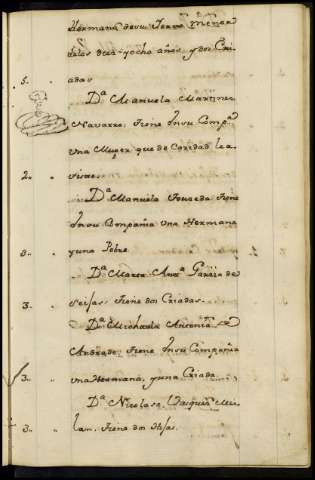 Hermana de su Yerno Menor
de los diez y ocho años, y dos Cri
5. adas
Dª Manuela Martinez
Navarro, tiene en su Compª
una Muger que de Caridad le a
2. siste.
Dª Manuela Tiene
en su Compañia una Hermana
y una Pobre
3. Dª Maria Antª Garzia de
Seijas, tiene dos Criadas.
Dª Michaela Antonia de
Andrade, tiene en su Compañia
3. una Hermana, y una Criada.
Dª Nicolasa Vazquez Mi
3. lan, tiene dos Hijas.